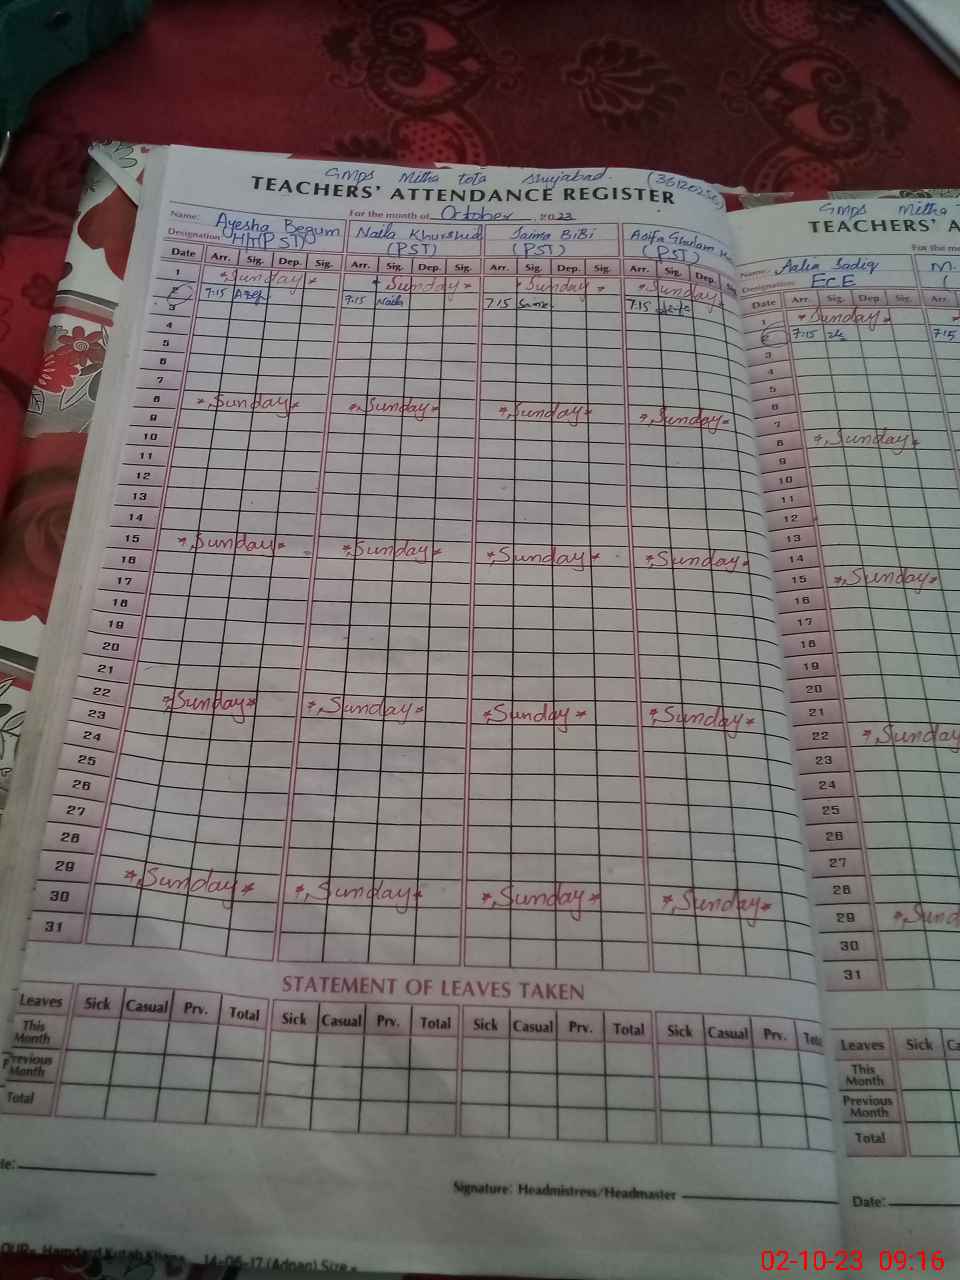 GMPS Mitha Tota Shujabad.
TEACHERS' ATTENDANCE REGISTER
Name: For the month of October 2023
Ayesha Begum Naila Khurshid Saima BiBi Asifa Ghulam
Designation HM(PST) (PST) (PST) (PST)
Date Arr. Sig. Dep. Sig. Arr. Sig. Dep. Sig. Arr. Sig. Dep. Sig. Arr. Sig. Dep. Sig.
1 *Sunday* *Sunday* *Sunday* *Sunday*
2 7:15 7:15 Naila 7:15 7:15
3
4
5
6
7
8 *Sunday* *Sunday* *Sunday* *Sunday*
9
10
11
12
13
14
15 *Sunday* *Sunday* *Sunday* *Sunday*
16
17
18
19
20
21
22 *Sunday* *Sunday* *Sunday* *Sunday*
23
24
25
26
27
28
29 *Sunday* *Sunday* *Sunday* *Sunday*
30
31
STATEMENT OF LEAVES TAKEN
Leaves Sick Casual Prv. Total Sick Casual Prv. Total Sick Casual Prv. Total Sick Casual Prv. Total
This Month
Previous Month
Total
Signature: Headmistress/Headmaster
Hamdard Kutab Khana 14-06-17 (Adnan) Size
GMPS Mitha
TEACHERS' A
For the
Name: Aalia Sadiq M.
Designation ECE
Date Arr. Sig. Dep. Sig. Arr.
1 *Sunday*
2 7:15 7:15
3
4
5
6
7
8 *Sunday*
9
10
11
12
13
14
15 *Sunday*
16
17
18
19
20
21
22 *Sunday
23
24
25
26
27
28
29 *Sund
30
31
Leaves Sick Ca
This Month
Previous Month
Total
Date:
02-10-23 09:16